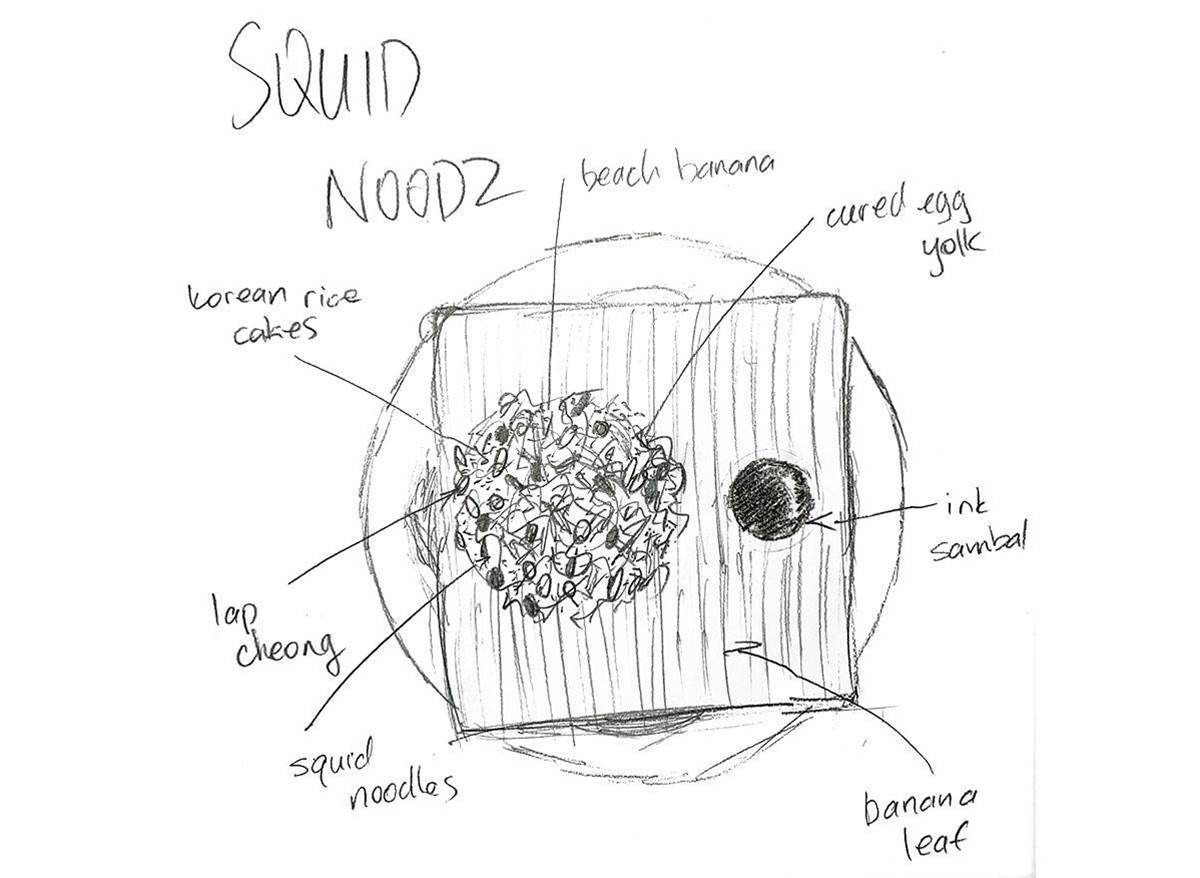 SQUID
NOODZ
beach banana
cured egg
yolk
korean rice
cakes
ink
sambal
lap
cheong
squid
noodles
banana
leaf